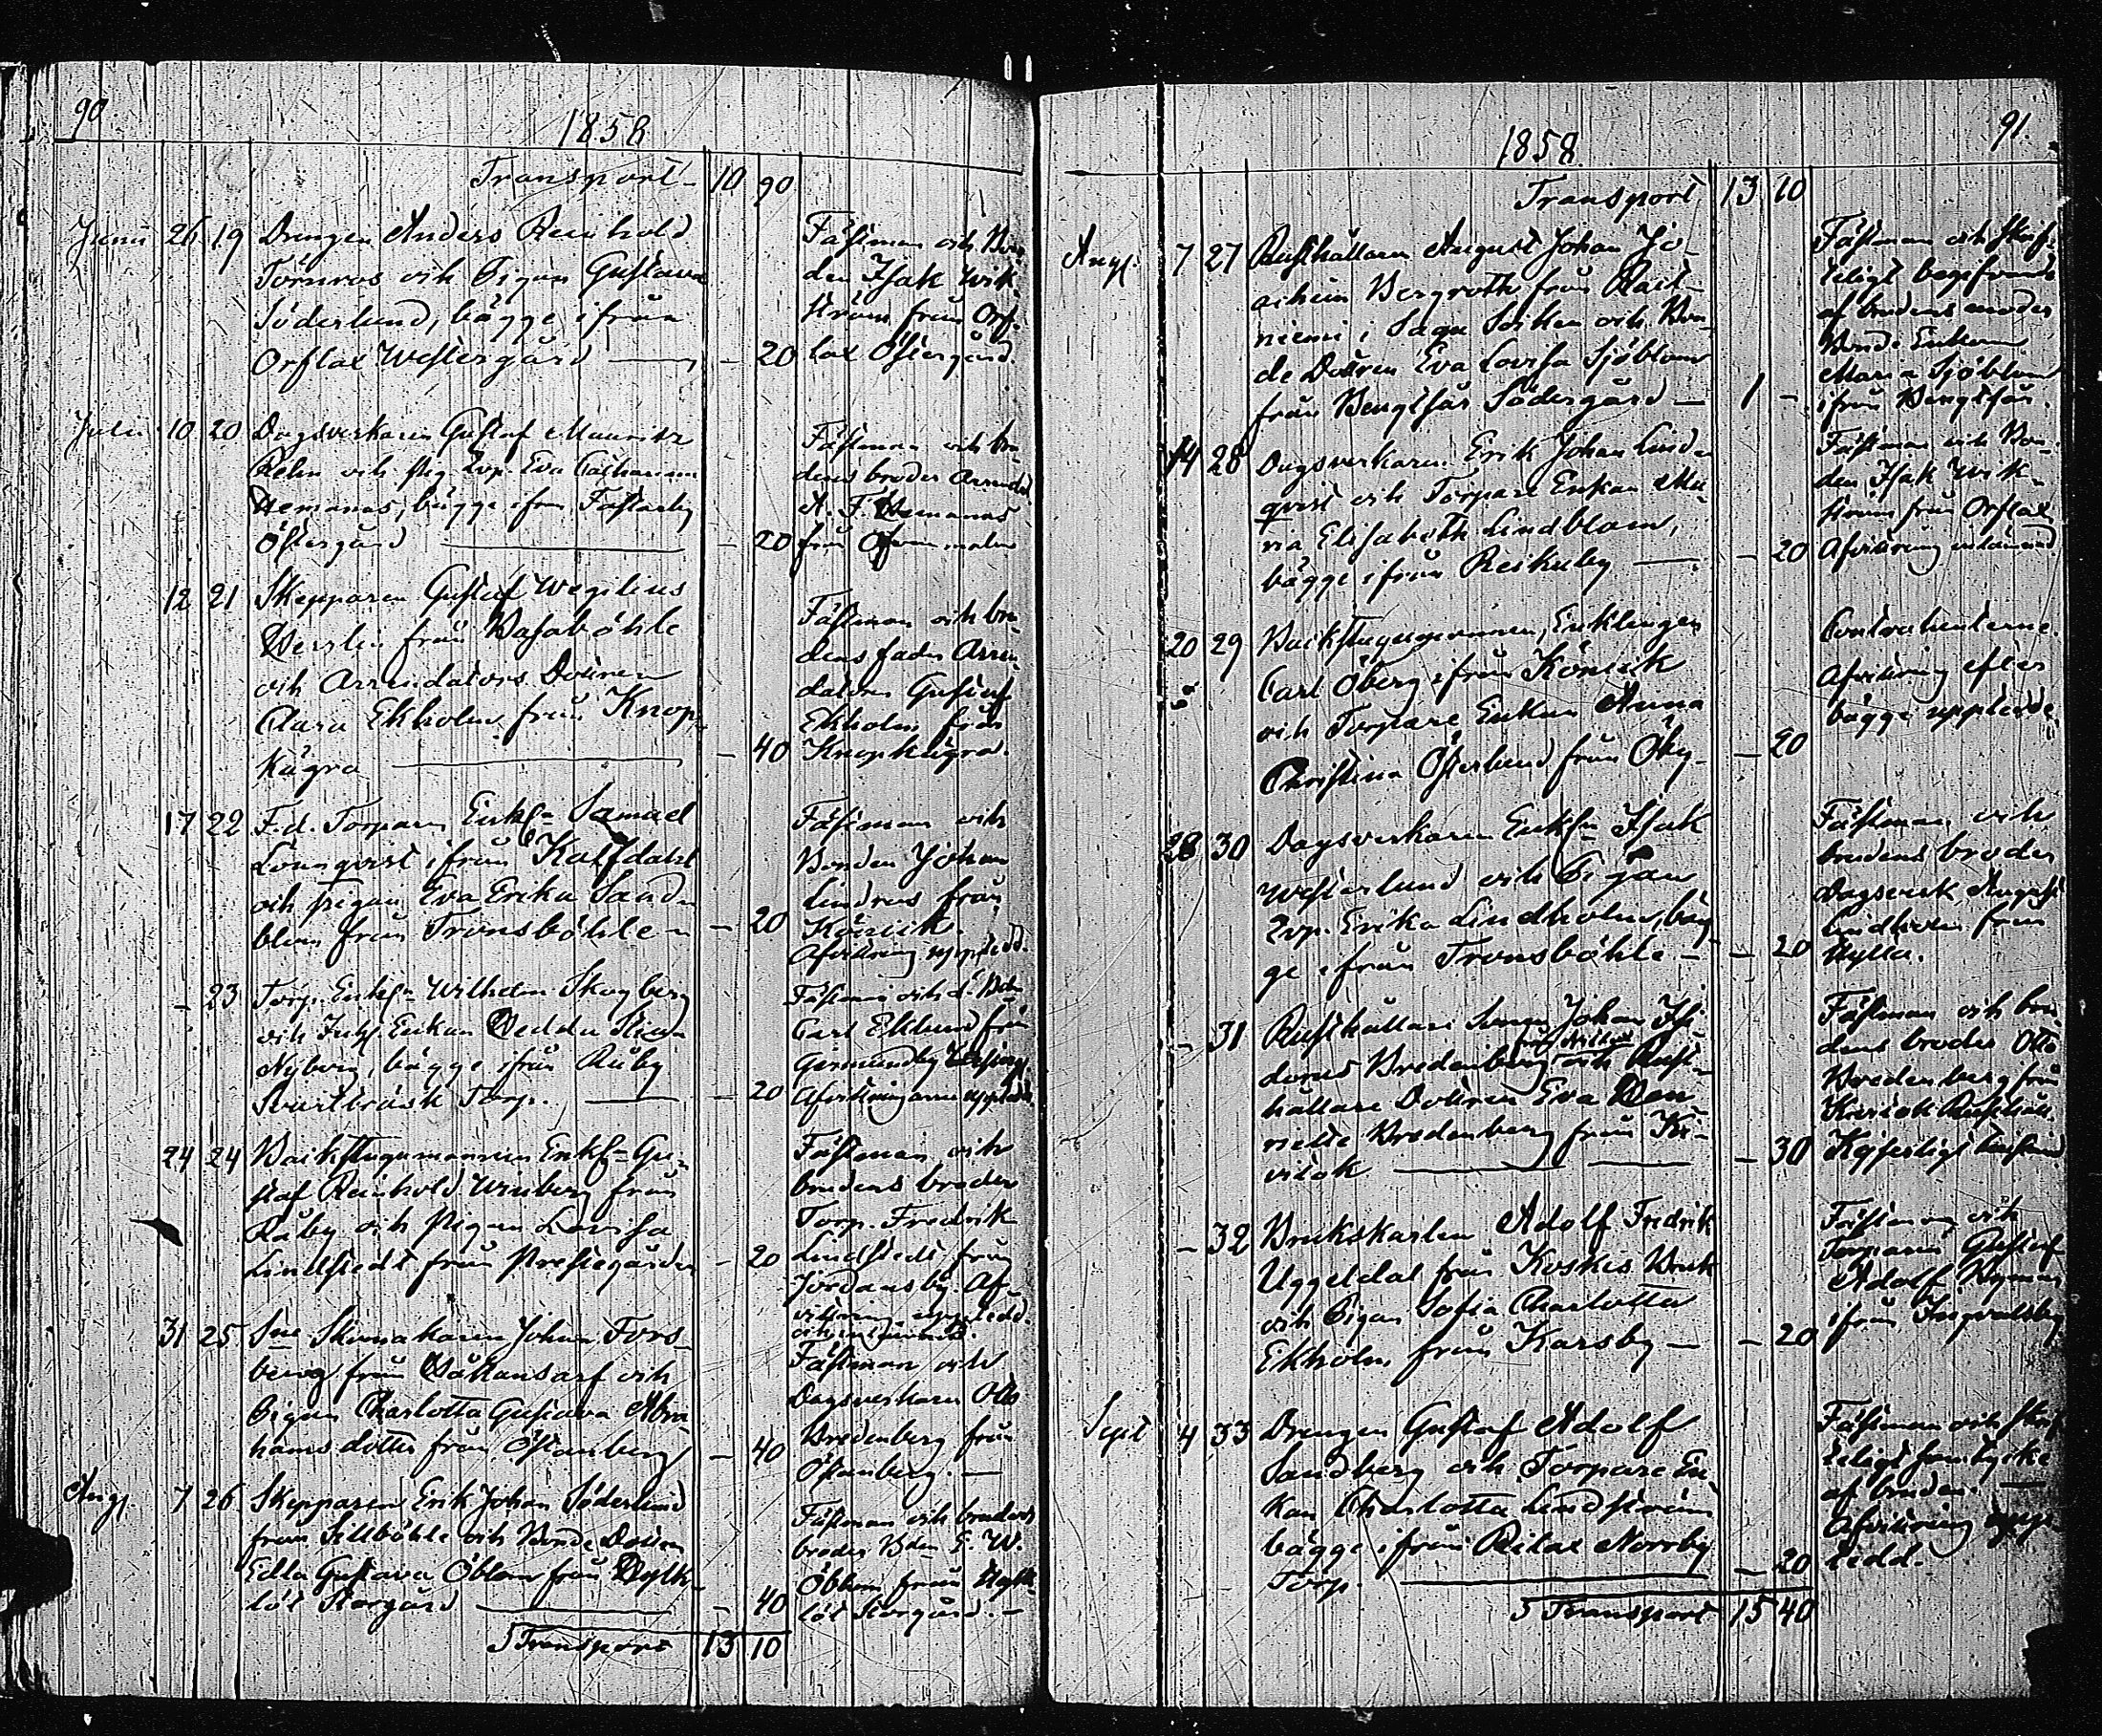 90
1858
Transport - 10 90
Junii 26 19 Drengen Anders Reinhold
Törnros och Pigan Gustava
Söderlund, bägge ifrån
Orslax Westergård — - 20
Fästman och Bon
den Isak Wik
ström från Ors
lax Östergård.
Julii 10 20 Dagsverkaren Gustaf Mauritz
Rehn och pig. Eva Catharina
bägge ifrån
Östergård — - 20
Fästman och bru
dens broder
A. F.
från
12 21 Skepparen Gustaf Wegelius
från Wasaböhle
och Arrendators Dottren
Clara Ekholm från Knop
kägra — - 40
Fästman och bru
dens fader Arren
datorn Gustaf
Ekholm från
Knopkägra.
17 22 F.d. Torparen Enkl. Samuel
Lönnqvist ifrån Kalfdahl
och pigan Eva Erika Sand
blom från Tronsböhle - - 20
Fästman och
Bonden Johan
Lindros från
Köinik.
Afvittring uppvisad.
- 23 Torp. Enkl. Wilhelm Skogberg
och Enkan Hedda Stina
Nyberg, bägge ifrån Råby
Svartbäck Torp. — - 20
Fästman och
Carl Eklund från
Gunnundby
24 24 Backstugumannen Enkl. Gu
staf Reinhold Winberg från
Råby och Pigan Lovisa
Lindstedt från Prestegården - 20
Fästman och
brudens broder
Torp. Fredrik
Lindstedt från
Jordansby. Af
vittring
31 25 Skomakaren Johan Fors
berg från Håkansarf och
Pigan Charlotta Gustava Abra
hams dotter från Östanberg - 40
Fästman och
Dagsverkaren Otto
Bredenberg från
Östanberg. —
Aug. 7 26 Skepparen Erik Johan Söderlund
från Sillböhle och Bonde Dottren
Edla Gustava Öblom från
Storgård — - 40
Fästman och brudens
broder E. W.
Öblom från
Storgård. —
Transport 13 10
91
1858
Transport 13 10
Aug. 7 27 Rusthållaren August Johan Jo
achim Bergroth från
niemi i Sagu Socken och Bon
de Dottren Eva Lovisa Sjöblom
från Bengtsår Södergård — 1 -
Fästman och skrif
teligt begifvande
af brudens moder
Bonde Enkan
Maria Sjöblom
ifrån Bengtsår.
14 28 Dagsverkaren Erik Johan Lind
qvist och Torpare Enkan Ma
ria Elisabeth Lindblom,
bägge ifrån Reikuby — - 20
Fästman och Bon
den Isak Wik
ström från Orslax
Afvittring inlämnad
20 29 Backstugumannen, Enklingen
Carl Öberg ifrån Köinik
och Torpare Enkan Anna
Christina Österlund från Öby - - 20
Contrahenterne.
Afvittring efter
bägge uppvisade.
28 30 Dagsverkaren Enkl. Isak
Westerlund och Pigan
Erika Lindholm, bäg
ge ifrån Tronsböhle - - 20
Fästman och
brudens broder
Dagsverk. August
Lindholm från
Hylla.
- 31 Rusthållare Sonen Johan Isi
dorus Bredenberg och Rust
hållare Dottren Eva Hen
riette Bredenberg från Ki
vitok — - 30
Fästman och bru
dens broder Otto
Bredenberg från
Kivitok
Kejserligt
- 32 Brukskarlen Adolf Fredrik
Uggeldal från Koskis Bruk
och Pigan Sofia Charlotta
Ekholm från Karsby — - 20
Fästman och
Torparen Gustaf
Adolf Nyman
ifrån Ingvaldsby
Sept 4 33 Drengen Gustaf Adolf
Sandberg och Torpare En
kan Charlotta Lindström
bägge ifrån Rilax Norrby
Torp. — - 20
Fästman och skrif
teligt samtycke
af bruden. —
Afvittring upp
tedd.
Transport 15 40